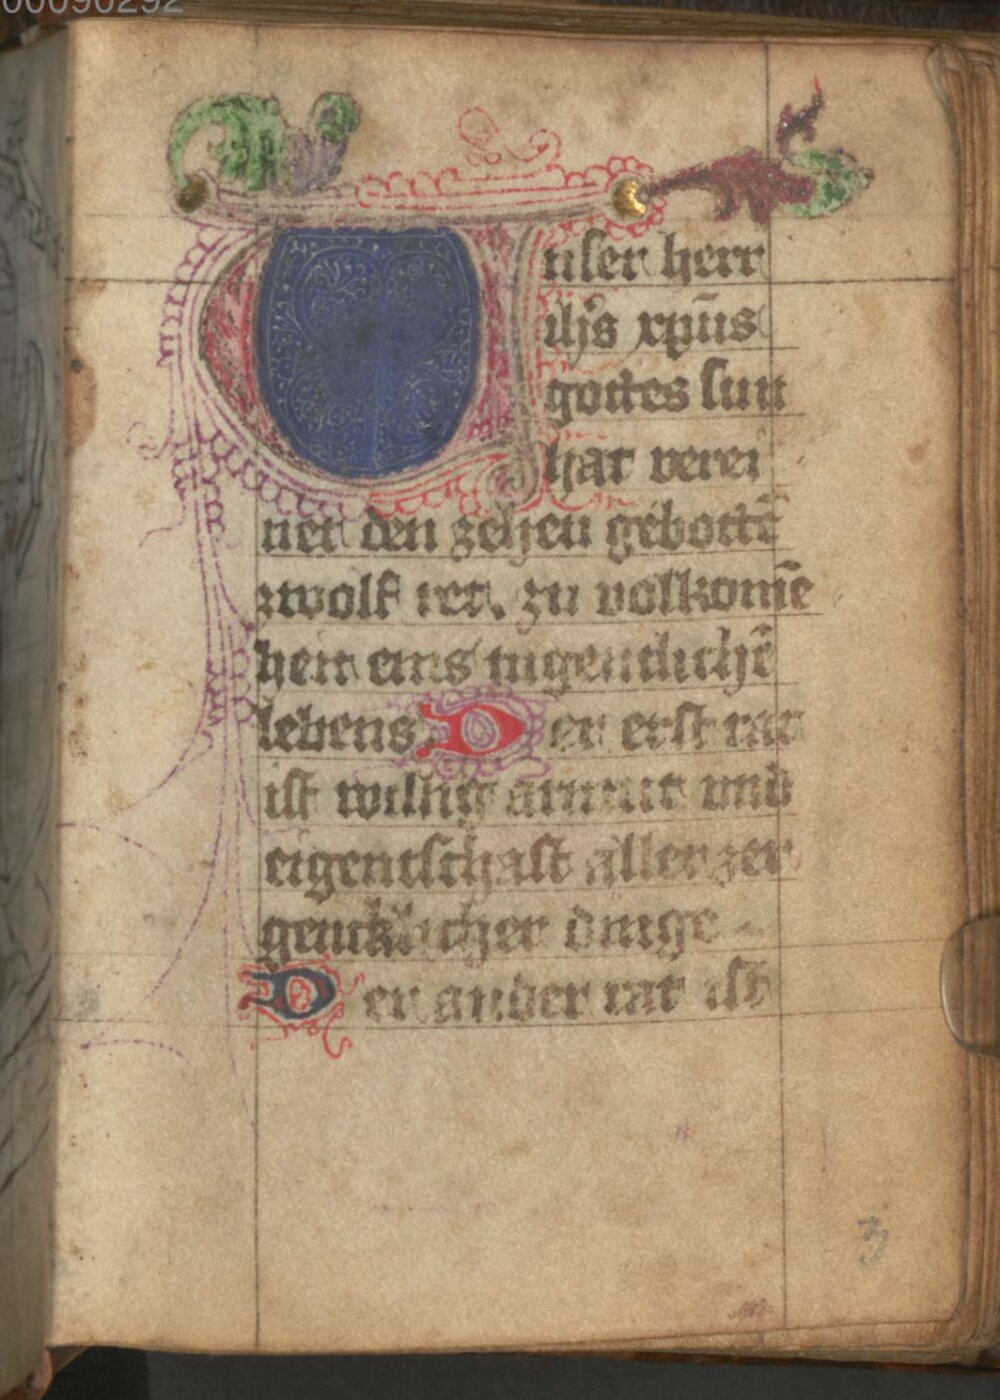 00090292
Unser herr
ihs xpūs
gottes sun
hat verei
net den zehen gebottē
zwolf ret. zu volkomē
heit eins tugentlichē
lebens. Der erst rat
ist willig armut und
eigentschaft aller zer
genklicher dinge
Der ander rat ist
3